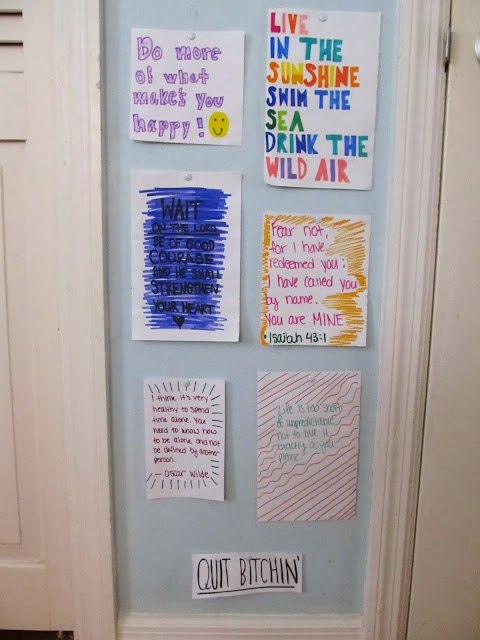 Do more
of what
makes you
happy!
LIVE
IN THE
SUNSHINE
SWIM THE
SEA
DRINK THE
WILD AIR
WAIT
ON THE LORD
BE OF GOOD
COURAGE
AND HE SHALL
STRENGTHEN
YOUR HEART
Fear not,
for I have
redeemed you;
I have called you
by name.
You are MINE
• Isaiah 43:1
I think it's very
healthy to spend
time alone. You
need to know how
to be alone and not
be defined by another
person.
— Oscar Wilde
Life is too short
& unpredictable
not to live it
exactly as you
please
QUIT BITCHIN'